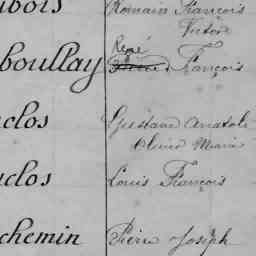 ubois Romain François
Victor
René
boullay François
uclos Gustave Anatole
Olivier Marie
uclos Louis François
chemin Pierre Joseph